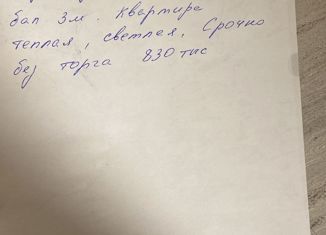 бал 3м. Квартира
теплая, светлая. Срочно
без торга 830 тыс